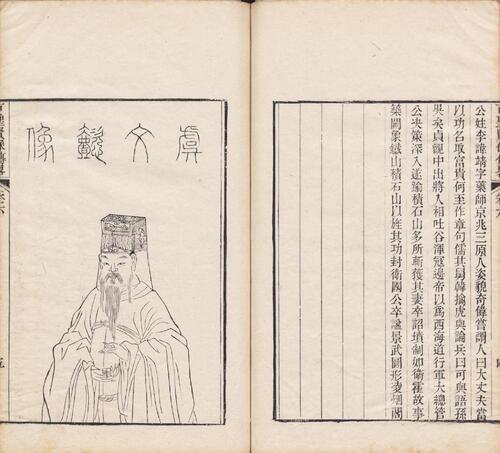 公姓李諱靖字藥師京兆三原人姿貌奇偉嘗謂人曰大丈夫當
以功名取富貴何至作章句儒其舅韓擒虎與論兵曰可與語孫
吳矣貞觀中出將入相吐谷渾寇邊帝以爲西海道行軍大總管
公決策深入遂踰積石山多所斬獲其妻卒詔墳制如衛霍故事
築闕象鐵山積石山以旌其功封衛國公卒諡景武圖形凌煙閣
虞文懿像
卷六
五